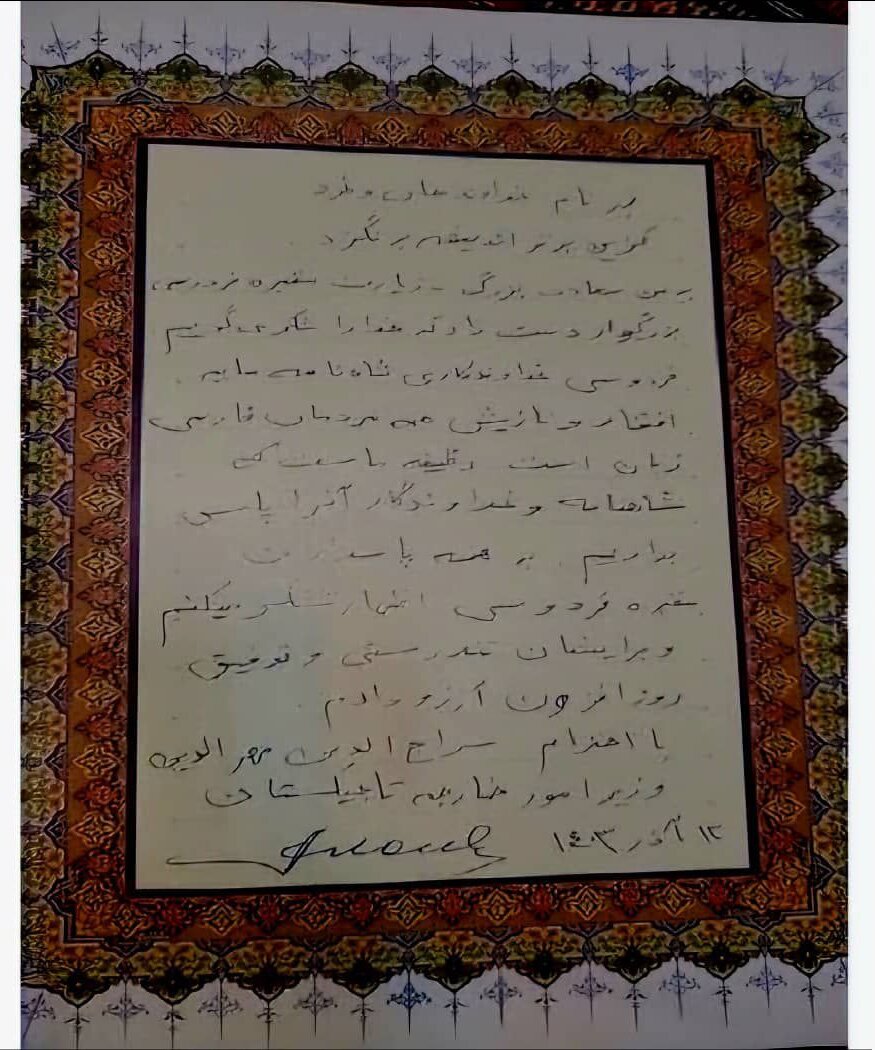 به نام خداوند جان و خرد
کزین برتر اندیشه برنگذرد
به من سعادت بزرگ زیارت مقبره فردوسی
بزرگوار دست داد که خدا را شکر می گویم
فردوسی خداوندکاری شاه نامه مایه
افتخار و نازش همه مردمان فارسی
زبان است وظیفه ماست که
شاهنامه و خداوندگار آنرا پاس
بداریم به همه پاسداران
مقبره فردوسی اظهار تشکر میکنم
و برایشان تندرستی و توفیق
روز افزون آرزو دارم
با احترام سراج الدین مهر الدین
وزیر امور خارجه تاجیکستان
۱۲ آذر ۱۴۰۳